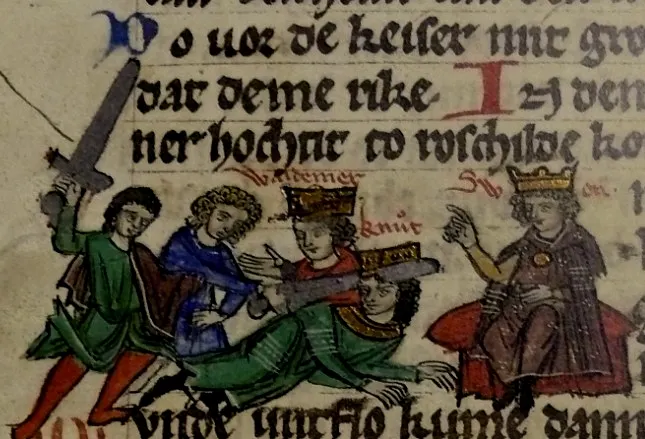 Do uor de keiser mit gro
dat deme rike. In den
ner hochtit to roschilde ko
waldemer
knut
vnde untflo kume dann